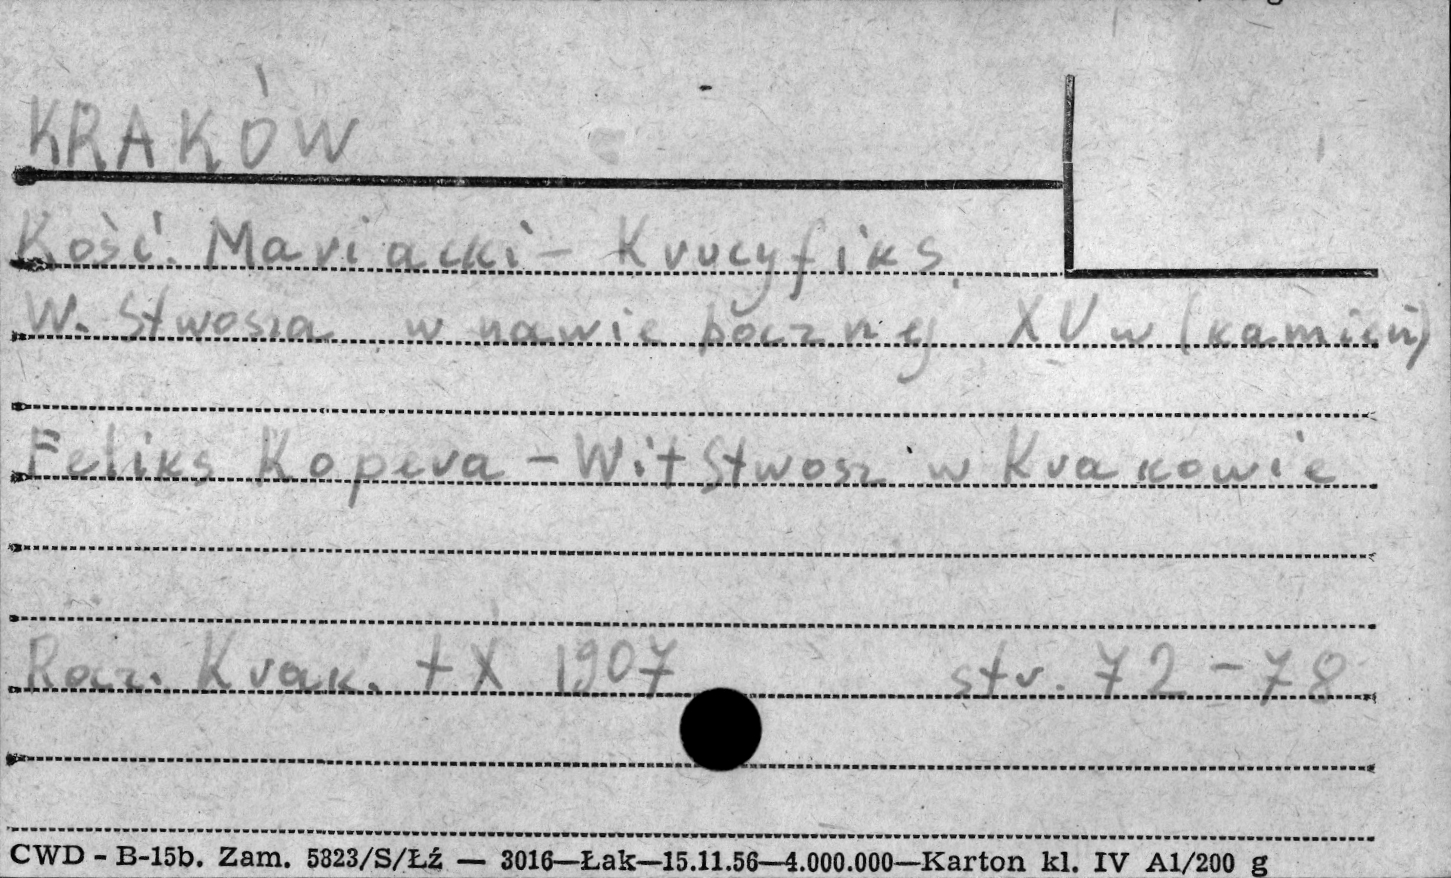 KRAKÓW
Kość. Mariacki - Krucyfiks
W. Stwosza w nawie bocznej XV w (kamień)
Feliks Kopera - Wit Stwosz w Krakowie
Rocz. Krak. t X 1907 str. 72-78
CWD - B-15b. Zam. 5323/S/Łź — 3016—Łak—15.11.56—4.000.000—Karton kl. IV A1/200 g